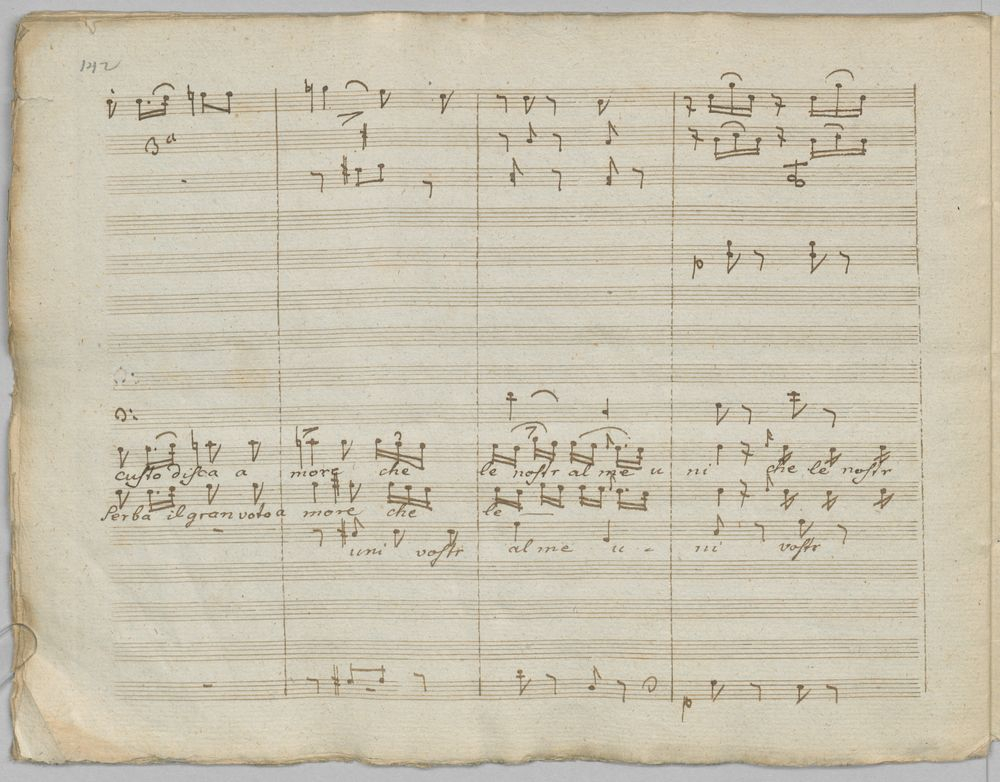 142
3a
p
custodisca a more che le nostr alme u ni che le nostr
Serba il gran voto a more che le
uni vostr alme u - ni vostr
p